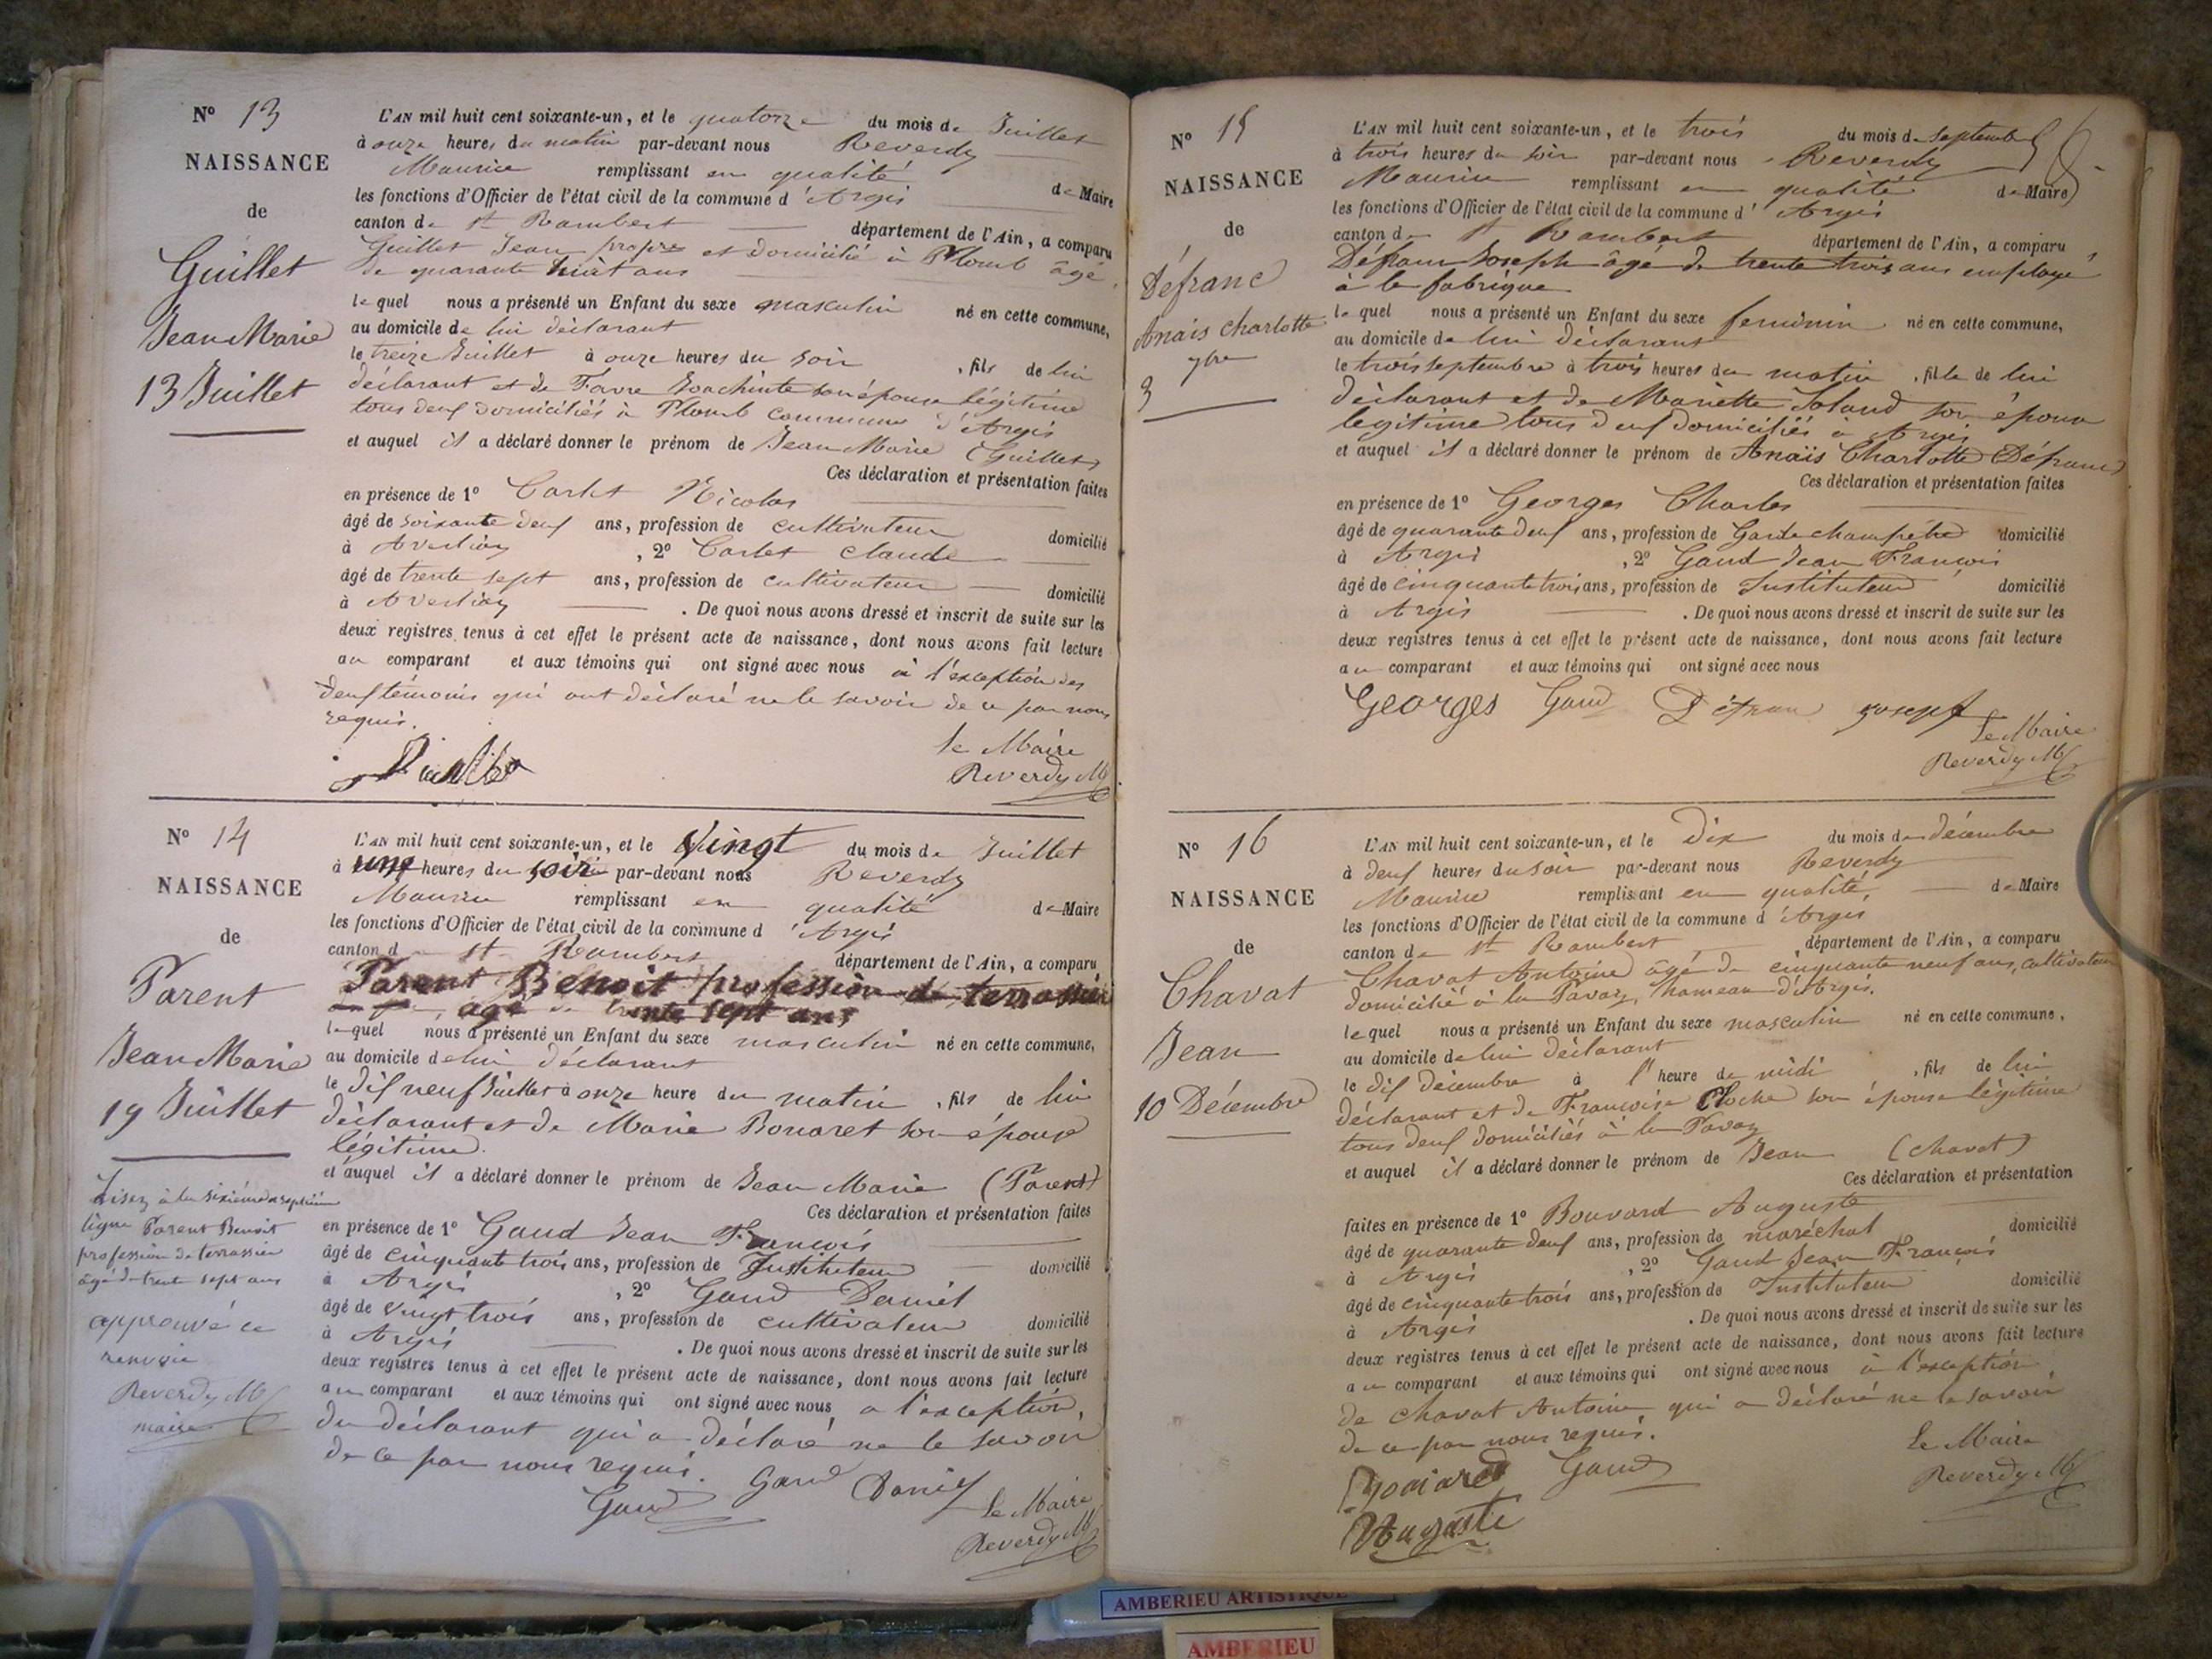 N° 13
NAISSANCE
de
Guillet
Jean Marie
13 Juillet
L'AN mil huit cent soixante-un, et le quatorze du mois de Juillet
à onze heures du matin par-devant nous Reverdy
Maurice remplissant en qualité de Maire
les fonctions d'Officier de l'état civil de la commune d'Argis
canton de St Rambert département de l'Ain, a comparu
Guillet Jean propre et domicilié à Plomb âgé
de quarante huit ans
lequel nous a présenté un Enfant du sexe masculin né en cette commune,
au domicile de lui déclarant
le treize Juillet à onze heures du soir, fils de lui
déclarant et de Favre Joachinte son épouse légitime
tous deux domiciliés à Plomb commune d'Argis
et auquel il a déclaré donner le prénom de Jean Marie (Guillet)
Ces déclaration et présentation faites
en présence de 1° Carlet Nicolas
âgé de soixante deux ans, profession de cultivateur domicilié
à , 2° Carlet Claude
âgé de trente sept ans, profession de cultivateur domicilié
à . De quoi nous avons dressé et inscrit de suite sur les
deux registres tenus à cet effet le présent acte de naissance, dont nous avons fait lecture
au comparant et aux témoins qui ont signé avec nous à l'exception des
deux témoins qui ont déclaré ne le savoir de ce par nous
requis.
Le Maire
Reverdy M
N° 14
NAISSANCE
de
Parent
Jean Marie
19 Juillet
Lisez à la sixième et septième
ligne Parent Benoit
profession de terrassier
âgé de trente sept ans
approuvé ce
renvoie
Reverdy M
maire
L'AN mil huit cent soixante-un, et le Vingt du mois de Juillet
à une heures du soir par-devant nous Reverdy
Maurice remplissant en qualité de Maire
les fonctions d'Officier de l'état civil de la commune d'Argis
canton d St Rambert département de l'Ain, a comparu
Parent Benoit profession de terrassier
âgé de trente sept ans
lequel nous a présenté un Enfant du sexe masculin né en cette commune,
au domicile de lui déclarant
le dix neuf Juillet à onze heure du matin, fils de lui
déclarant et de Marie Bonaret son épouse
légitime.
et auquel il a déclaré donner le prénom de Jean Marie (Parent)
Ces déclaration et présentation faites
en présence de 1° Gaud Jean François
âgé de cinquante trois ans, profession de Instituteur domicilié
à Argis, 2° Gaud Daniel
âgé de vingt trois ans, profession de cultivateur domicilié
à Argis. De quoi nous avons dressé et inscrit de suite sur les
deux registres tenus à cet effet le présent acte de naissance, dont nous avons fait lecture
au comparant et aux témoins qui ont signé avec nous a l'exception,
du déclarant qui a déclaré ne le savoir
de ce par nous requis.
Gaud Gaud Daniel
Le Maire
Reverdy M
N° 15
NAISSANCE
de
Défranc
Anaïs Charlotte
7bre
3
L'AN mil huit cent soixante-un, et le trois du mois de septembre
à trois heures du soir par-devant nous Reverdy
Maurice remplissant en qualité de Maire
les fonctions d'Officier de l'état civil de la commune d'Argis
canton de St Rambert département de l'Ain, a comparu
Défranc Joseph âgé de trente trois ans employé
à la fabrique
lequel nous a présenté un Enfant du sexe feminin né en cette commune,
au domicile de lui déclarant
le trois septembre à trois heures du matin, fille de lui
déclarant et de Mariette son épouse
légitime tous deux domiciliés à Argis
et auquel il a déclaré donner le prénom de Anaïs Charlotte Défranc
Ces déclaration et présentation faites
en présence de 1° Georges Charles
âgé de quarante deux ans, profession de Garde champêtre domicilié
à Argis, 2° Gaud Jean François
âgé de cinquante trois ans, profession de Instituteur domicilié
à Argis. De quoi nous avons dressé et inscrit de suite sur les
deux registres tenus à cet effet le présent acte de naissance, dont nous avons fait lecture
au comparant et aux témoins qui ont signé avec nous
Georges Gaud Défranc Joseph
Le Maire
Reverdy M
N° 16
NAISSANCE
de
Chavat
Jean
10 Décembre
L'AN mil huit cent soixante-un, et le dix du mois de décembre
à deux heures du soir par-devant nous Reverdy
Maurice remplissant en qualité de Maire
les fonctions d'Officier de l'état civil de la commune d'Argis
canton de St Rambert département de l'Ain, a comparu
Chavat Antoine âgé de cinquante neuf ans, cultivateur
domicilié à la Pavaz, hameau d'Argis.
lequel nous a présenté un Enfant du sexe masculin né en cette commune,
au domicile de lui déclarant
le dix décembre à l'heure de midi, fils de lui
déclarant et de Françoise Cloche son épouse légitime
tous deux domiciliés à la Pavaz
et auquel il a déclaré donner le prénom de Jean (Chavat)
Ces déclaration et présentation
faites en présence de 1° Bouvard Auguste
âgé de quarante deux ans, profession de maréchal domicilié
à Argis, 2° Gaud Jean François
âgé de cinquante trois ans, profession de Instituteur domicilié
à Argis. De quoi nous avons dressé et inscrit de suite sur les
deux registres tenus à cet effet le présent acte de naissance, dont nous avons fait lecture
au comparant et aux témoins qui ont signé avec nous à l'exception
de Chavat Antoine qui a déclaré ne le savoir
de ce par nous requis.
Gaud
Auguste
Le Maire
Reverdy M
AMBERIEU ARTISTIQUE
AMBERIEU